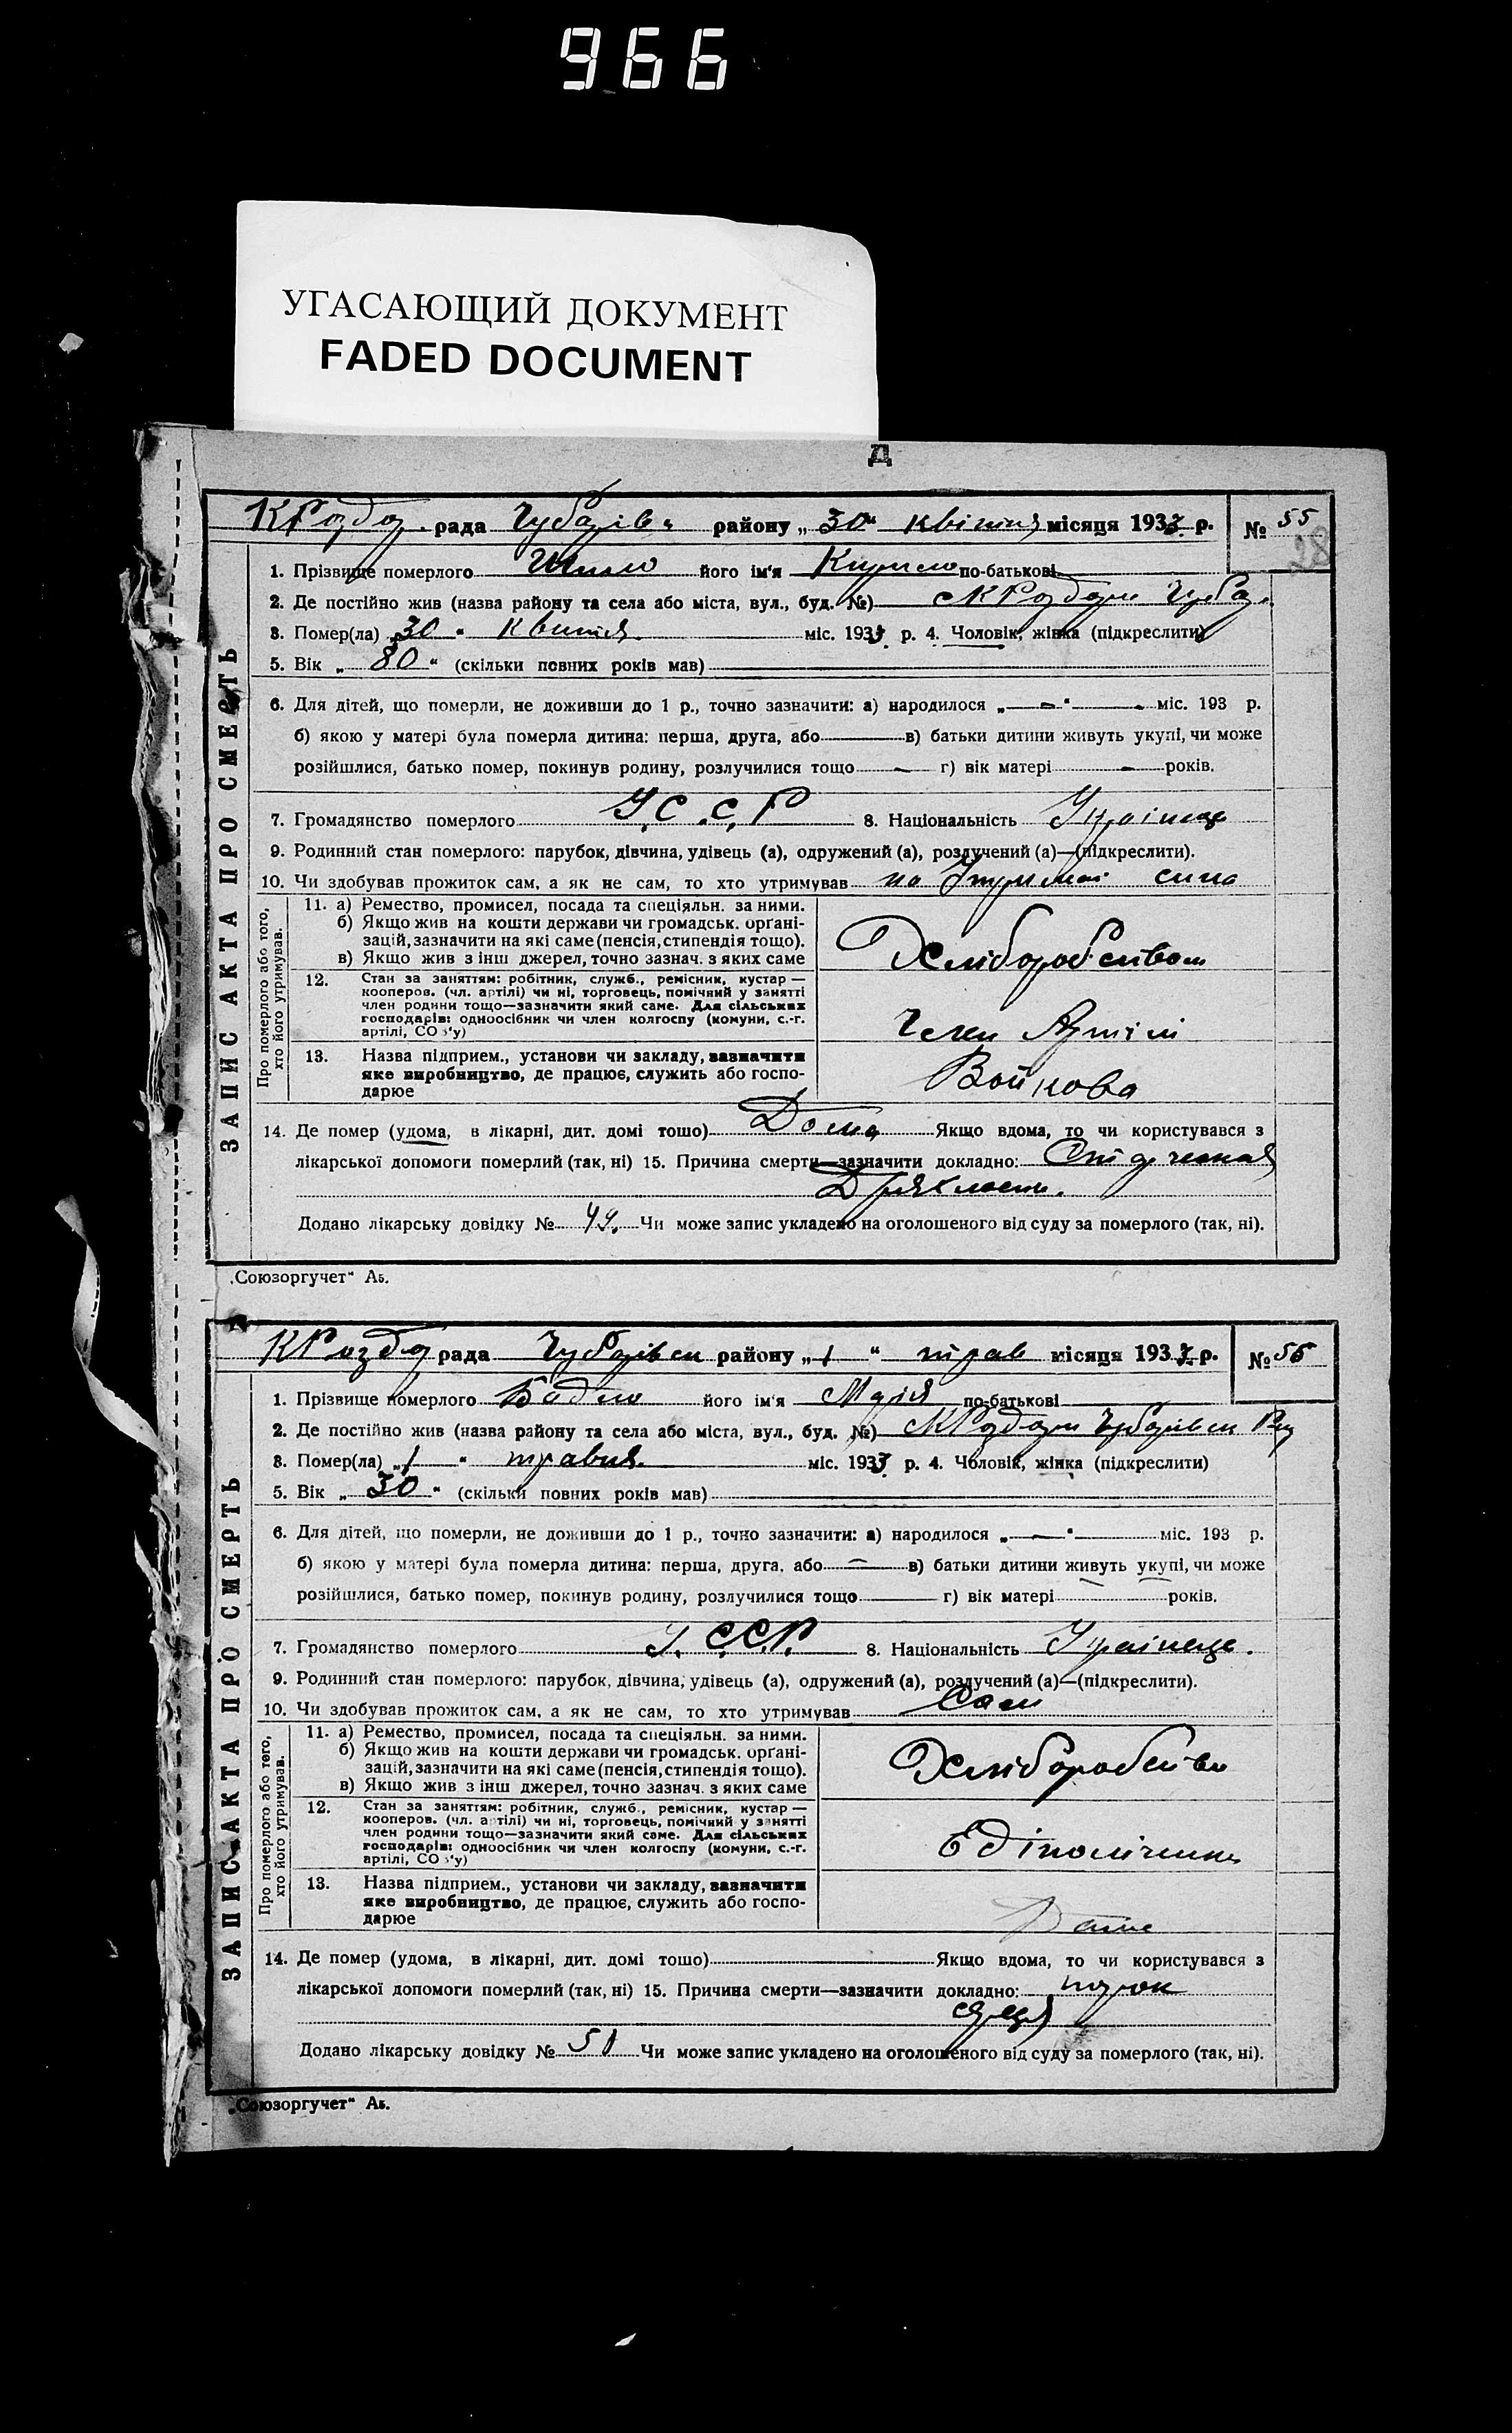 966
УГАСАЮЩИЙ ДОКУМЕНТ
FADED DOCUMENT
Д
рада район­у „30“ квітня місяця 1933 р. № 55
28
ЗАПИС АКТА ПРО СМЕРТЬ
1. Прізвище померлого Шило його ім'я Кирило по-батькові
2. Де постійно жив (назва району та села або міста, вул., буд. №)
3. Помер(ла) „30“ Квитня міс. 1933 р. 4. Чоловік, жінка (підкреслити)
5. Вік „80“ (скільки повних років мав)
6. Для дітей, що померли, не доживши до 1 р., точно зазначити: а) народилося „—“ міс. 193 р.
б) якою у матері була померла дитина: перша, друга, або — в) батьки дитини живуть укупі, чи може
розійшлися, батько помер, покинув родину, розлучилися тощо — г) вік матері — років.
7. Громадянство померлого У.С.С.Р 8. Національність
9. Родинний стан померлого: парубок, дівчина, удівець (а), одружений (а), розлучений (а)—(підкреслити).
10. Чи здобував прожиток сам, а як не сам, то хто утримував на сина
Про померлого або того, хто його утримував.
11. а) Ремество, промисел, посада та спеціяльн. за ними.
б) Якщо жив на кошти держави чи громадськ. орґані-
зацій, зазначити на які саме (пенсія, стипендія тощо).
в) Якщо жив з інш джерел, точно зазнач. з яких саме
Хліборобством
12. Стан за заняттям: робітник, служб., ремісник, кустар —
кооперов. (чл. артілі) чи ні, торговець, помічний у занятті
член родини тощо—зазначити який саме. Для сільських
господарів: одноосібник чи член колгоспу (комуни, с.-г.
артілі, СО у)
Член Артілі
13. Назва підприєм., установи чи закладу, зазначити
яке виробництво, де працює, служить або госпо-
дарює
Войкова
14. Де помер (удома, в лікарні, дит. домі тошо) Дома Якщо вдома, то чи користувався з
лікарської допомоги померлий (так, ні) 15. Причина смерти—зазначити докладно:
Додано лікарську довідку № 49. Чи може запис укладено на оголошеного від суду за померлого (так, ні).
„Союзоргучет“ Аб.
рада району „1“ трав місяця 1933 р. № 56
ЗАПИС АКТА ПРО СМЕРТЬ
1. Прізвище померлого його ім'я Марія по-батькові
2. Де постійно жив (назва району та села або міста, вул., буд. №)
3. Помер(ла) „1“ травня міс. 1933 р. 4. Чоловік, жінка (підкреслити)
5. Вік „30“ (скільки повних років мав)
6. Для дітей, що померли, не доживши до 1 р., точно зазначити: а) народилося „—“ міс. 193 р.
б) якою у матері була померла дитина: перша, друга, або — в) батьки дитини живуть укупі, чи може
розійшлися, батько помер, покинув родину, розлучилися тощо г) вік матері років.
7. Громадянство померлого У.С.С.Р. 8. Національність
9. Родинний стан померлого: парубок, дівчина, удівець (а), одружений (а), розлучений (а)—(підкреслити).
10. Чи здобував прожиток сам, а як не сам, то хто утримував Сам
Про померлого або того, хто його утримував.
11. а) Ремество, промисел, посада та спеціяльн. за ними.
б) Якщо жив на кошти держави чи громадськ. орґані-
зацій, зазначити на які саме (пенсія, стипендія тощо).
в) Якщо жив з інш джерел, точно зазнач. з яких саме
Хліборобство
12. Стан за заняттям: робітник, служб., ремісник, кустар —
кооперов. (чл. артілі) чи ні, торговець, помічний у занятті
член родини тощо—зазначити який саме. Для сільських
господарів: одноосібник чи член колгоспу (комуни, с.-г.
артілі, СО у)
13. Назва підприєм., установи чи закладу, зазначити
яке виробництво, де працює, служить або госпо-
дарює
14. Де помер (удома, в лікарні, дит. домі тошо) Якщо вдома, то чи користувався з
лікарської допомоги померлий (так, ні) 15. Причина смерти—зазначити докладно:
Додано лікарську довідку № 51 Чи може запис укладено на оголошеного від суду за померлого (так, ні).
„Союзоргучет“ Аб.